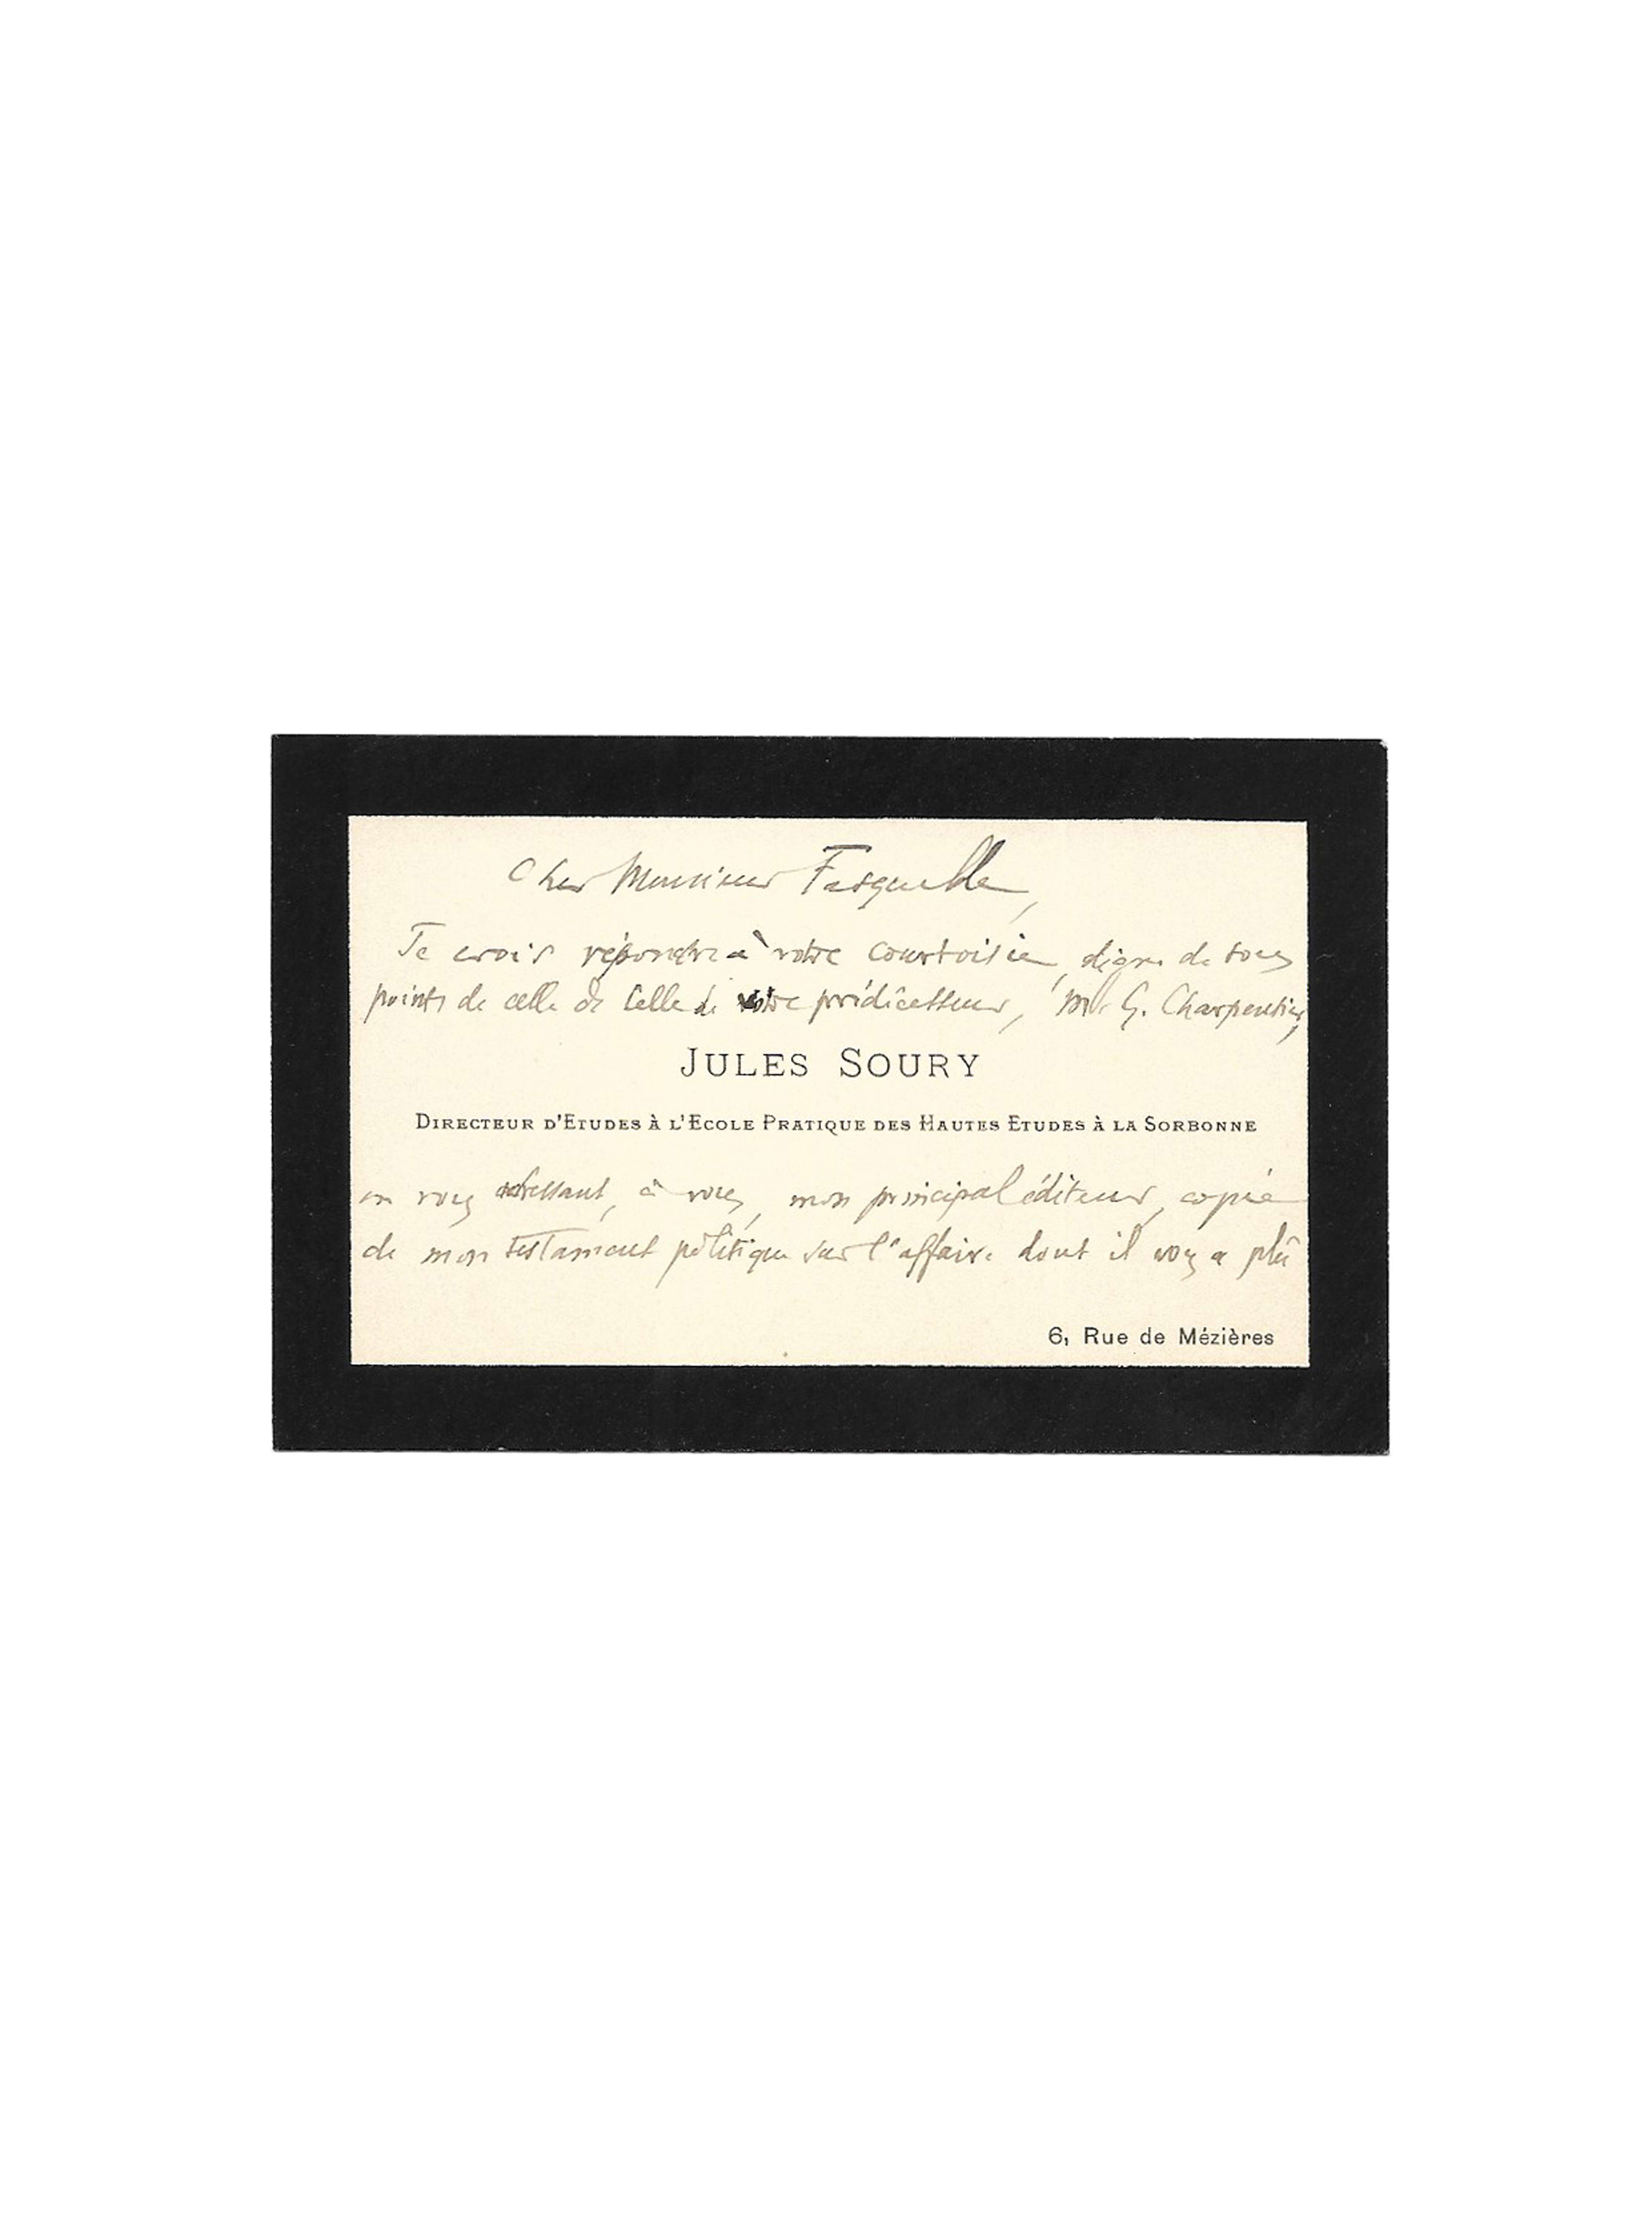 Cher Monsieur Fasquelle,
Je crois répondre à votre courtoisie, digne de tous
points de celle de celle de votre prédécesseur, Mr G. Charpentier,
JULES SOURY
DIRECTEUR D'ETUDES À L'ECOLE PRATIQUE DES HAUTES ETUDES À LA SORBONNE
en vous adressant, à vous, mon principal éditeur, copie
de mon testament politique sur l'affaire dont il vous a plû
6, Rue de Mézières